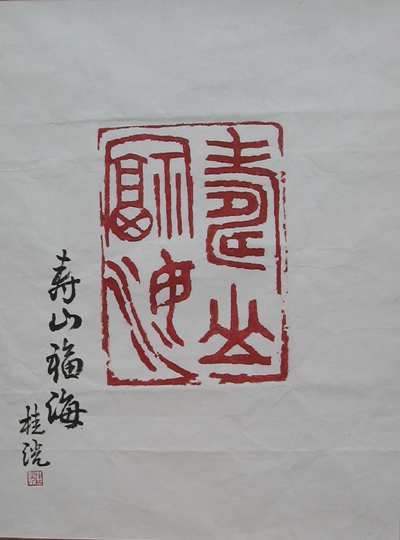 壽山
福海
寿山福海
桂浣